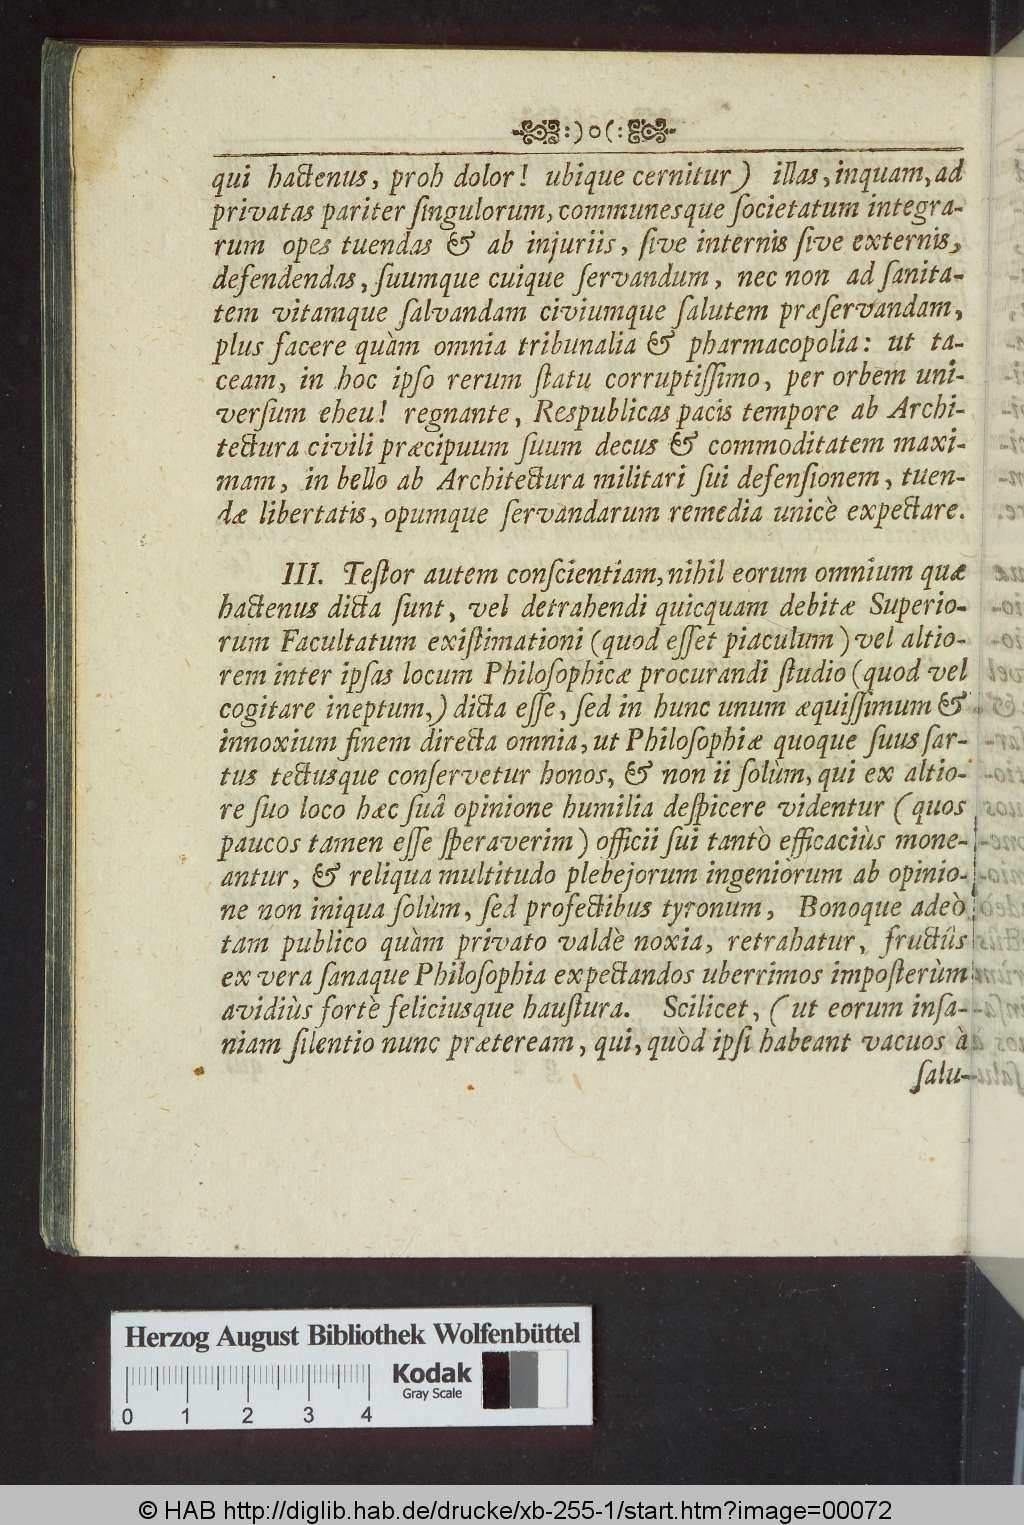 :)o(:
qui hactenus, proh dolor! ubique cernitur) illas, inquam, ad
privatas pariter ſingulorum, communesque ſocietatum integra-
rum opes tuendas & ab injuriis, ſive internis ſive externis,
defendendas, ſuumque cuique ſervandum, nec non ad ſanita-
tem vitamque ſalvandam civiumque ſalutem præſervandam,
plus facere quàm omnia tribunalia & pharmacopolia: ut ta-
ceam, in hoc ipſo rerum ſtatu corruptiſſimo, per orbem uni-
verſum eheu! regnante, Respublicas pacis tempore ab Archi-
tectura civili præcipuum ſuum decus & commoditatem maxi-
mam, in bello ab Architectura militari ſui defenſionem, tuen-
dæ libertatis, opumque ſervandarum remedia unicè expectare.
III. Teſtor autem conſcientiam, nihil eorum omnium quæ
hactenus dicta ſunt, vel detrahendi quicquam debitæ Superio-
rum Facultatum exiſtimationi (quod eſſet piaculum) vel altio-
rem inter ipſas locum Philoſophicæ procurandi ſtudio (quod vel
cogitare ineptum,) dicta eſſe, ſed in hunc unum æquiſſimum &
innoxium finem directa omnia, ut Philoſophiæ quoque ſuus ſar-
tus tectusque conſervetur honos, & non ii ſolùm, qui ex altio-
re ſuo loco hæc ſuâ opinione humilia deſpicere videntur (quos
paucos tamen eſſe ſperaverim) officii ſui tantò efficaciùs mone-
antur, & reliqua multitudo plebejorum ingeniorum ab opinio-
ne non iniqua ſolùm, ſed profectibus tyronum, Bonoque adeò
tam publico quàm privato valdè noxia, retrahatur, fructûs
ex vera ſanaque Philoſophia expectandos uberrimos impoſterùm
avidiùs fortè feliciusque hauſtura. Scilicet, (ut eorum inſa-
niam ſilentio nunc præteream, qui, quòd ipſi habeant vacuos à
ſalu-
Herzog August Bibliothek Wolfenbüttel
Kodak
Gray Scale
0 1 2 3 4
© HAB http://diglib.hab.de/drucke/xb-255-1/start.htm?image=00072